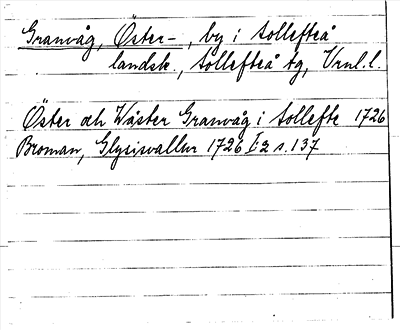 Granvåg, Öster-, by i Sollefteå
landsk., Sollefteå tg, Vrnl.l.
Öster och Wäster Granvåg i Sollefte 1726
Broman, Glysisvallur 1726 I:2 s. 137